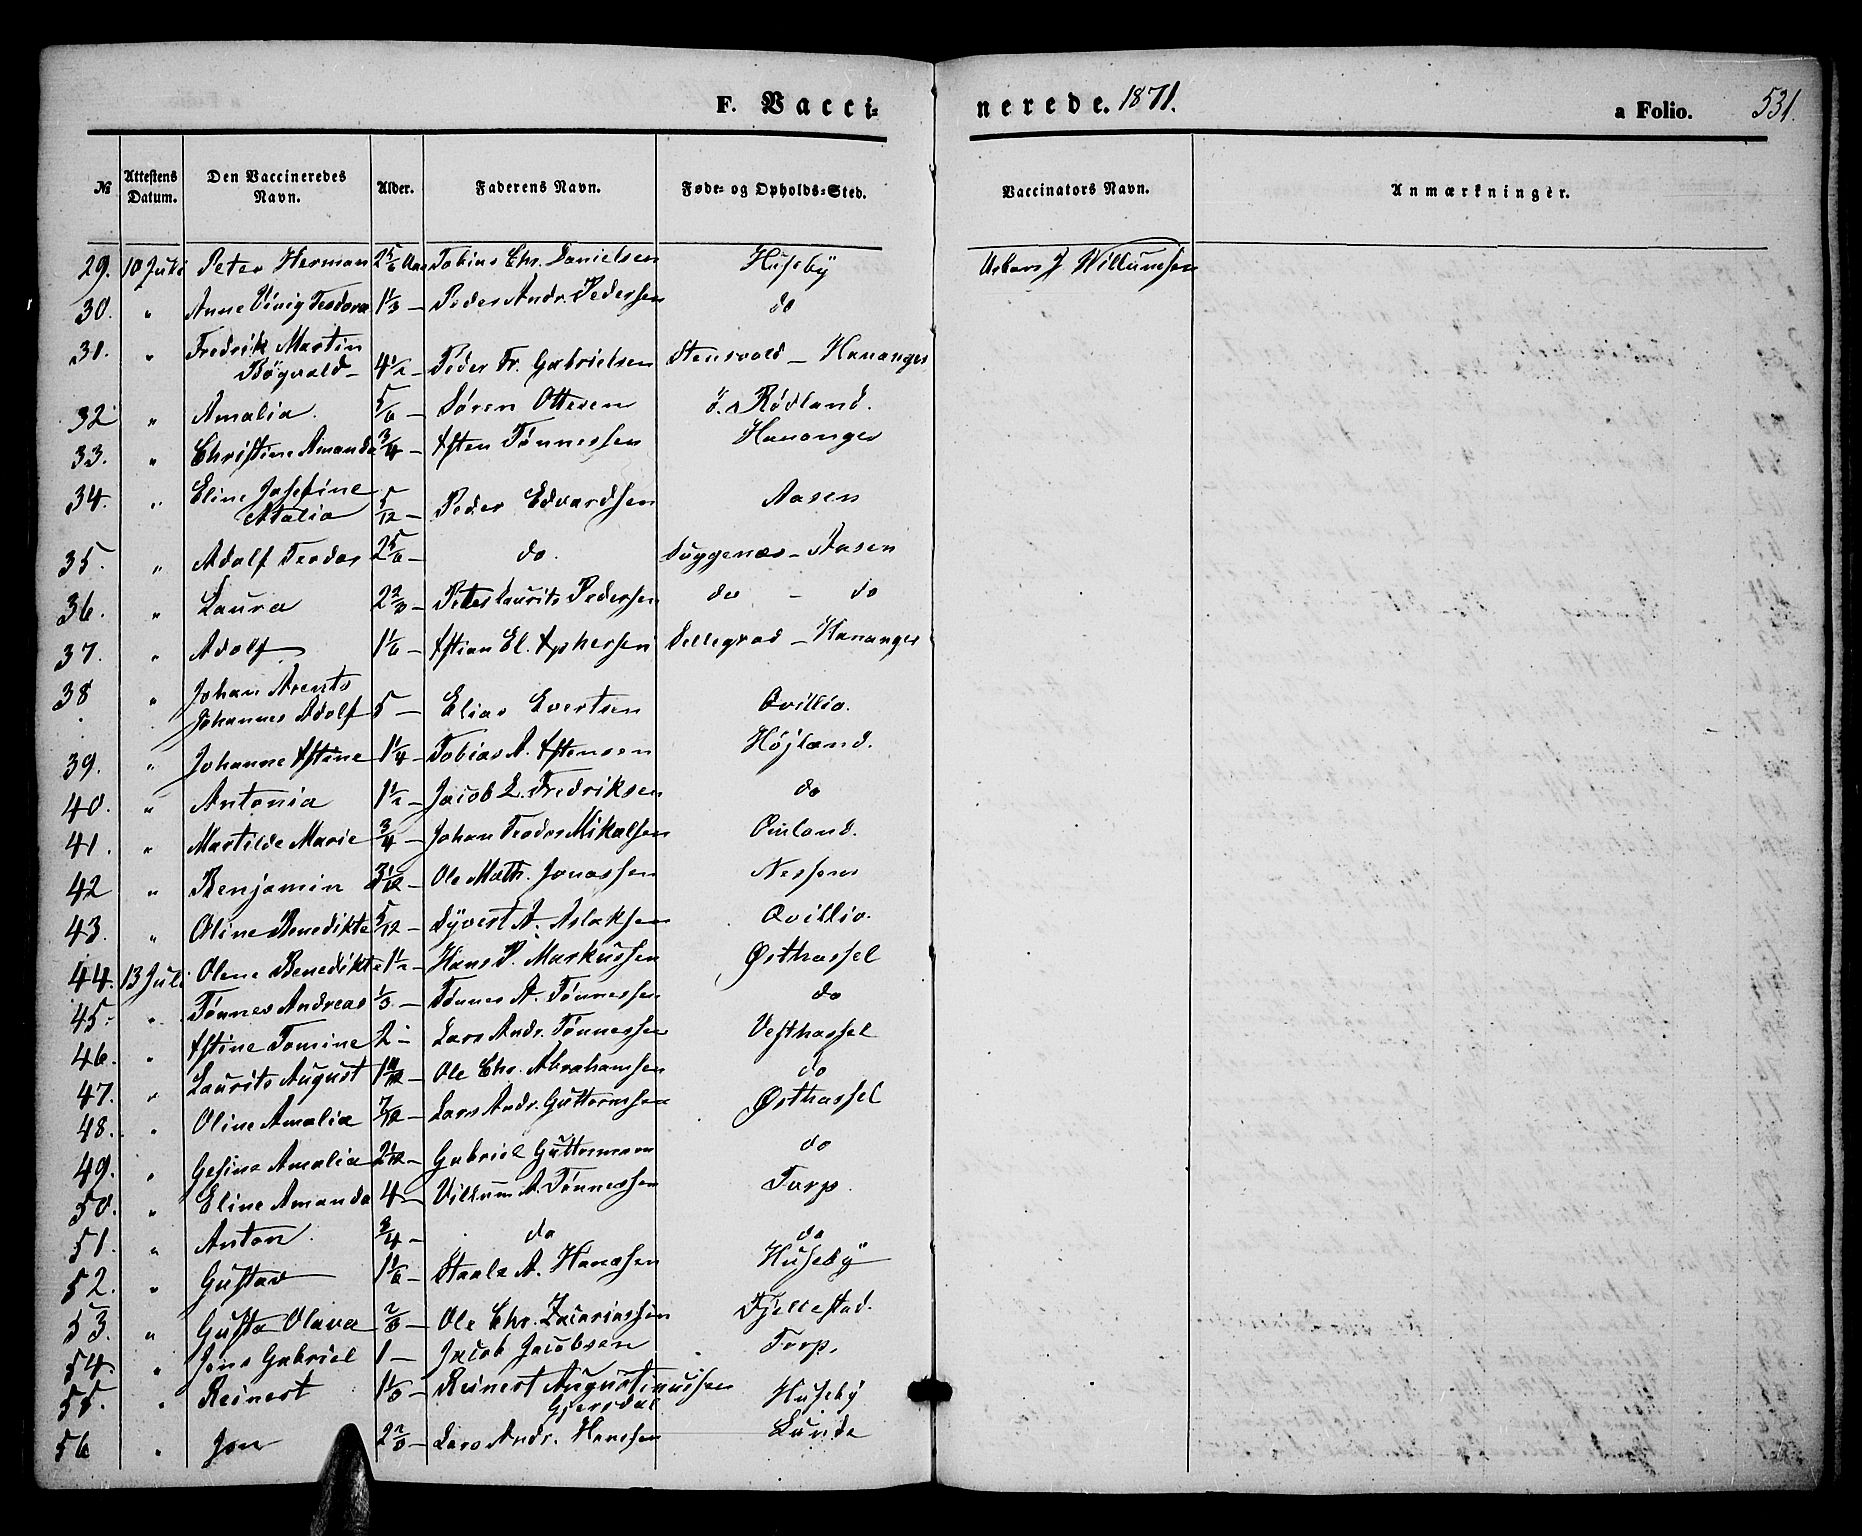 F. Vacci- nerede. 1871. a Folio. 531.
№ Attestens Datum. Den Vaccineredes Navn. Alder. Faderens Navn. Føde- og Opholds-Sted. Vaccinators Navn. Anmærkninger.
29. 10 Juli Peter Herman 2 5/6 Aar Tobias Chr. Danielsen Huseby J. Willumsen
30. " Anne Teodora 1 1/3 — Peder Andr. Pedersen do
31. " Fredrik Martin
Bøgvald — 4 1/2 — Peder Fr. Gabrielsen Stensvold — Hananger
32 " Amalia. 5/6 — Søren Ottesen Rødland.
33. " Christine Amanda 3/4 — Tønnessen Hananger
34. " Eline Josefine
Atalia 5/12 — Peder Edvardsen Aasen
35. " Adolf Teodor 2 5/6 — do. — Aasen
36. " Laura 2 2/3 — Peter Laurits Pedersen do — do
37. " Adolf 1 1/6 — El. — Hananger
38 " Johan Arents
Johannes Adolf 5 — Elias Evertsen Qvillio.
39. " Johanne 1 1/4 — Tobias A. Højland.
40. " Antonia 1 1/2 — Jacob L. Fredriksen do
41. " Martilde Marie 3/4 — Johan Teodor Mikalsen
42 " Benjamin Ole Math. Jonassen
43. " Oline Benedikte 5/12 — Syvert A. Aslaksen Qvillio.
44. 13 Juli Olene Benedikte 1 1/2 — Hans P. Markussen Østhassel
45. " Tønnes Andreas 1/3 — Tønnes A. Tønnessen do
46. " Tomine 2 — Lars Andr. Tønnessen Vesthassel
47. " Laurits August Ole Chr. Abrahamsen do
48. " Oline Amalia 7/12 — Lars Andr. Guttormsen Østhassel
49. " Gesine Amalia 2 1/12 — Gabriel do
50. " Eline Amanda 4 — Villum A. Tønnessen Torp.
51. " Anton. 3/4 — do do
52. " Gustav 1 1/6 — Staale A. Hansen Huseby
53. " Gusta Olava 2/3 — Ole Chr. Zacariassen Fjellestad.
54. " Jens Gabriel 1 — Jacob Jacobsen Torp.
55. " Reinert 1 1/3 — Reinert Augustinussen
Gjersdal Huseby
56 " Jon 2 2/3 — Lars Andr. Hansen Lunde